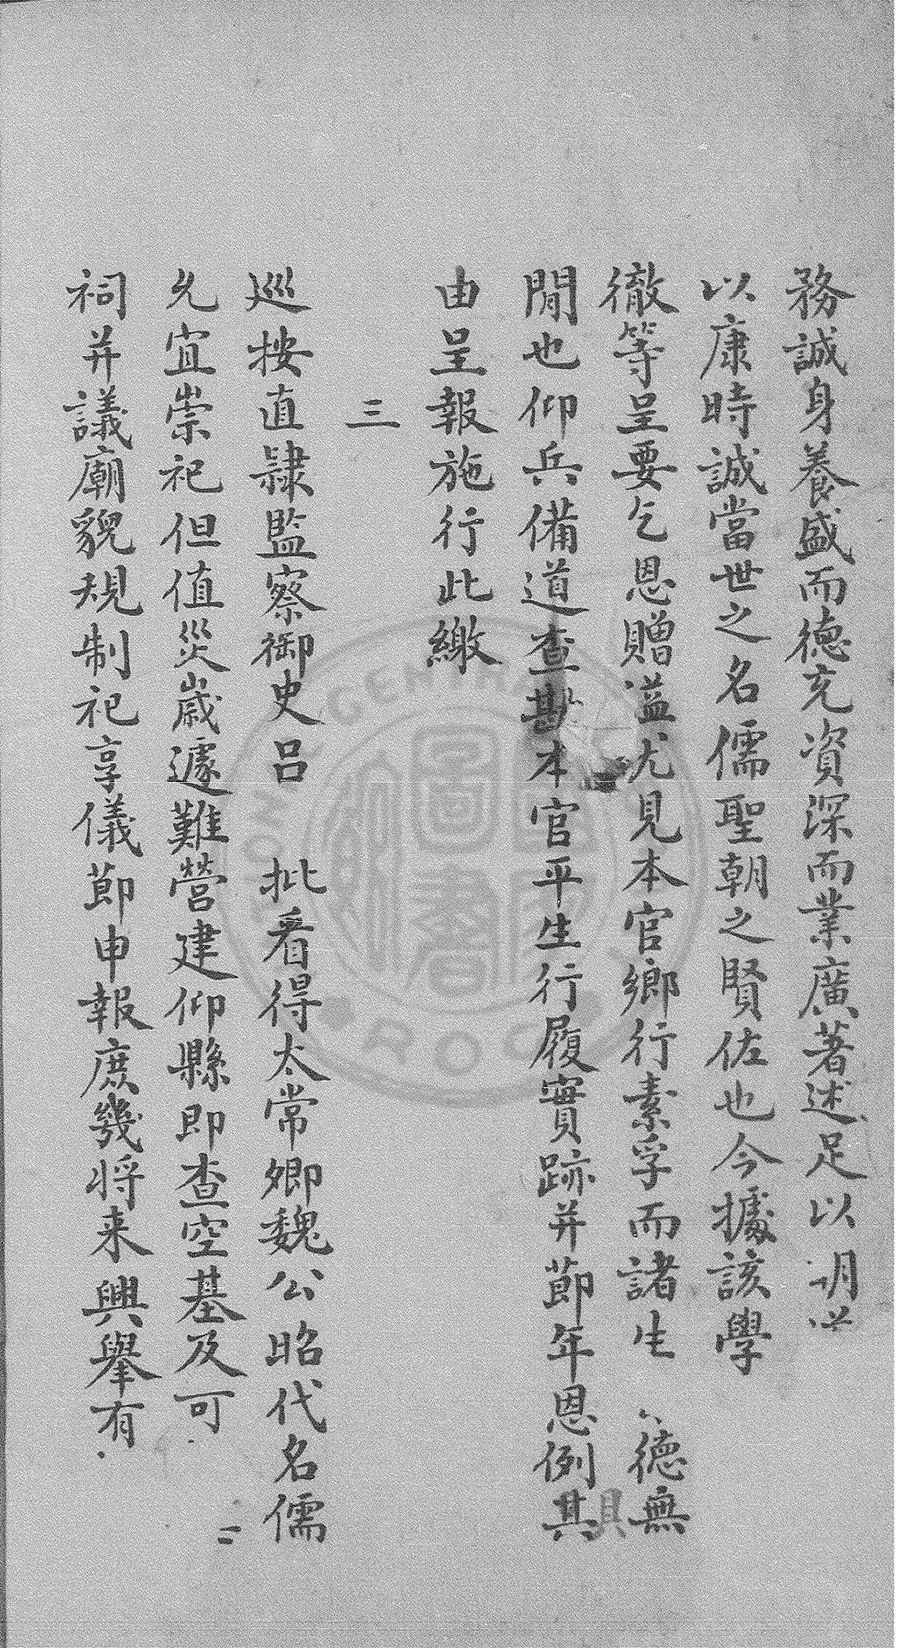 務誠身養盛而德充資深而業廣著述足以明
以康時誠當世之名儒聖朝之賢佐也今據該學
徹等呈要乞恩贈謚尤見本官鄉行素孚而諸生 德無
閒也仰兵備道查勘本官平生行履實跡并節年恩例其
由呈報施行此繳
三
巡按直隸監察御史呂 批看得太常卿魏公昭代名儒
允宜崇祀但值災歲遽難營建仰縣即查空基及可
祠并議廟貌規制祀享儀節申報庶幾將来興舉有
NATIONAL CENTRAL
國家圖書館
ROC